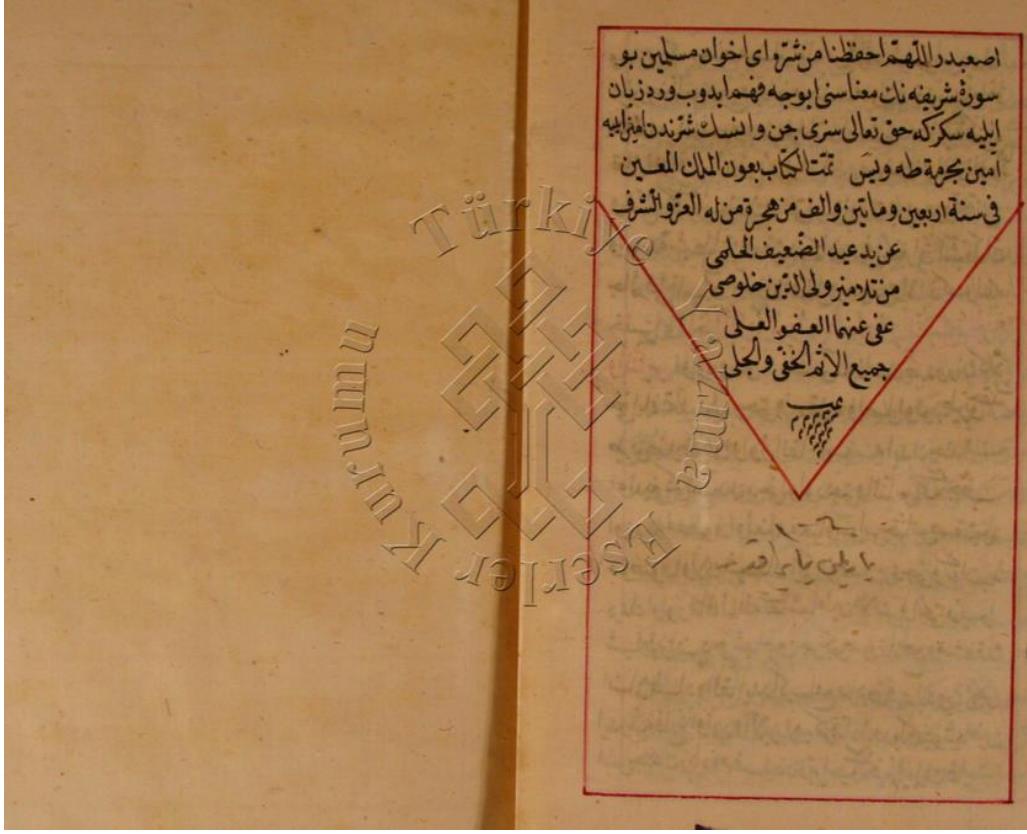 اصعبدر اللهم احفظنا من شره ای اخوان مسلمین بو
سورۀ شریفه نك معناسنی ایوجه فهم ایدوب ورد زبان
ایلیه سكز كه حق تعالی سزی جن وانسك شرندن امین ایلیه
امین بحرمة طه ویس تمت الكتاب بعون الملك المعین
فی سنة اربعین وماتین والف من هجرة من له العز والشرف
عن ید عبد الضعیف الحلمی
من تلامیذ ولی الدین خلوصی
عفی عنهما العفو العلی
جمیع الاثم الخفی والجلی
Türkiye Yazma Eserler Kurumu